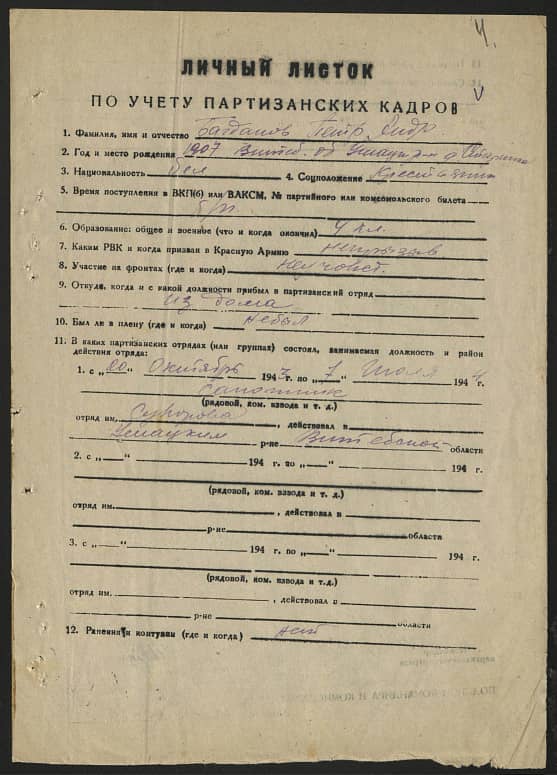 4.
V
ЛИЧНЫЙ ЛИСТОК
ПО УЧЕТУ ПАРТИЗАНСКИХ КАДРОВ
1. Фамилия, имя и отчество Багданов Петр Андр
2. Год и место рождения 1907 Витеб. об Ушацки р-н д.
3. Национальность бел 4. Соцположение Крестьянин
5. Время поступления в ВКП(б) или ВЛКСМ, № партийного или комсомольского билета
б/п.
6. Образование: общее и военное (что и когда окончил) 4 кл.
7. Каким РВК и когда призван в Красную Армию непризыв
8. Участие на фронтах (где и когда) неучавст.
9. Откуда, когда и с какой должности прибыл в партизанский отряд
из дома
10. Был ли в плену (где и когда) небыл
11. В каких партизанских отрядах (или группах) состоял, занимаемая должность и район
действия отряда:
1. с „20“ Октябрь 1943 г. по „7“ Июля 1944 г.
Сапожник
(рядовой, ком. взвода и т. д.)
отряд им. Суворова, действовал в
Ушацким р-не Витебской области
2. с „—“ 194 г. по „—“ 194 г.
(рядовой, ком. взвода и т. д.)
отряд им. , действовал в
р-не области
3. с „—“ 194 г. по „—“ 194 г.
(рядовой, ком. взвода и т.д.)
отряд им. , действовал в
р-не области
12. Ранения и контузии (где и когда) нет